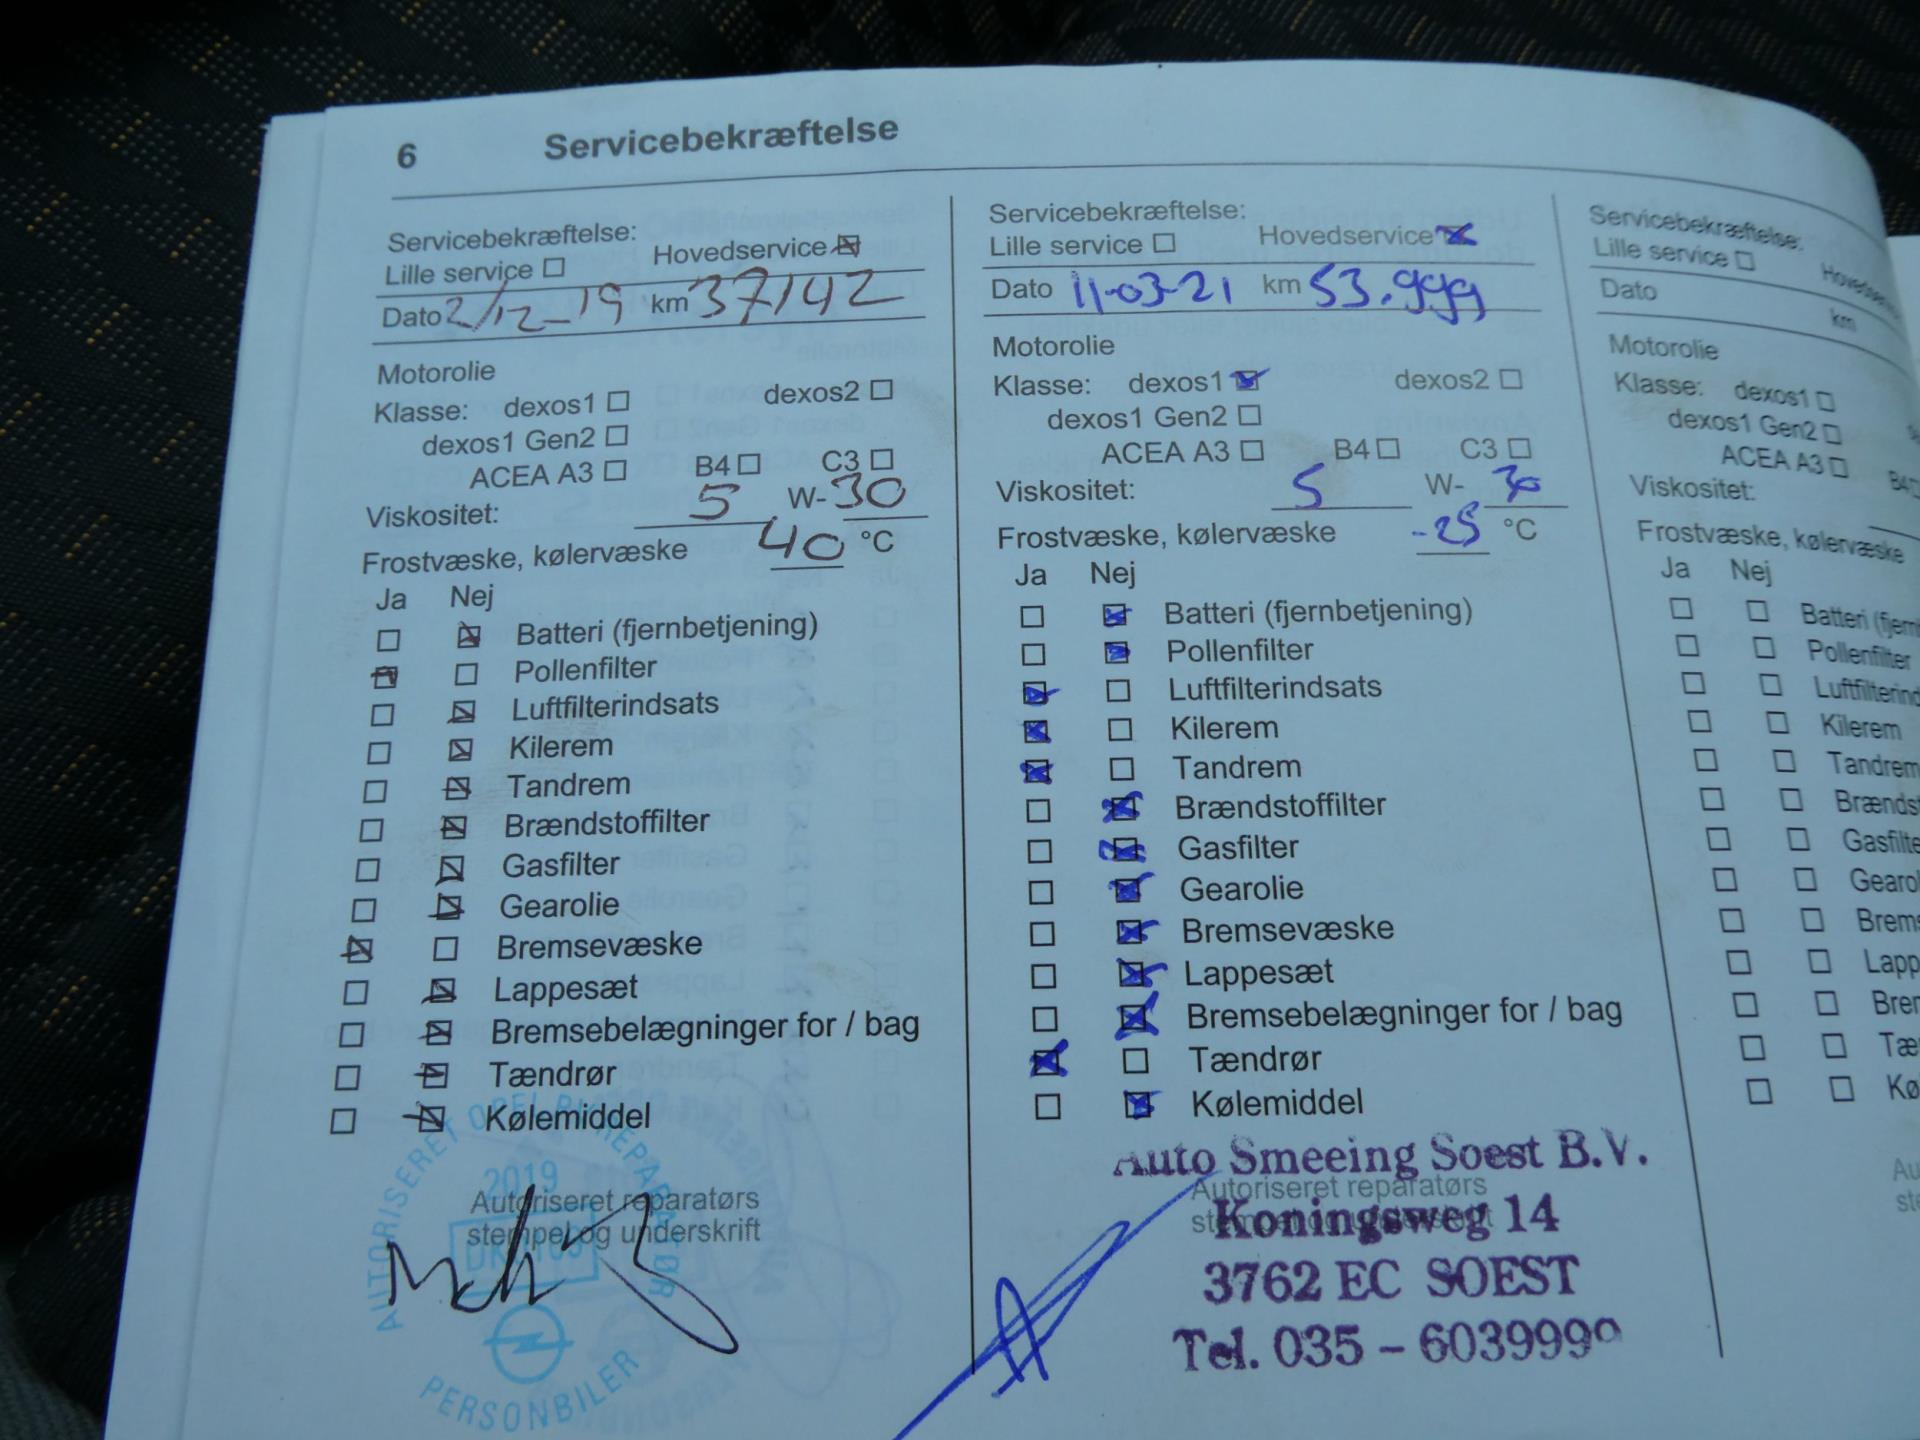 6 Servicebekræftelse
Servicebekræftelse:
Lille service ☐ Hovedservice ☒
Dato 2/12-19 km 37142
Motorolie
Klasse: dexos1 ☐ dexos2 ☐
dexos1 Gen2 ☐
ACEA A3 ☐ B4 ☐ C3 ☐
Viskositet: 5 W- 30
Frostvæske, kølervæske 40 °C
Ja Nej
☐ ☒ Batteri (fjernbetjening)
☒ ☐ Pollenfilter
☐ ☒ Luftfilterindsats
☐ ☒ Kilerem
☐ ☒ Tandrem
☐ ☒ Brændstoffilter
☐ ☒ Gasfilter
☐ ☒ Gearolie
☒ ☐ Bremsevæske
☐ ☒ Lappesæt
☐ ☒ Bremsebelægninger for / bag
☐ ☒ Tændrør
☐ ☒ Kølemiddel
Autoriseret reparatørs
stempel og underskrift
2019
PERSONBILER
Servicebekræftelse:
Lille service ☐ Hovedservice ☒
Dato 11-03-21 km 53.999
Motorolie
Klasse: dexos1 ☒ dexos2 ☐
dexos1 Gen2 ☐
ACEA A3 ☐ B4 ☐ C3 ☐
Viskositet: 5 W- 30
Frostvæske, kølervæske -25 °C
Ja Nej
☐ ☒ Batteri (fjernbetjening)
☐ ☒ Pollenfilter
☒ ☐ Luftfilterindsats
☒ ☐ Kilerem
☒ ☐ Tandrem
☐ ☒ Brændstoffilter
☐ ☒ Gasfilter
☐ ☒ Gearolie
☐ ☒ Bremsevæske
☐ ☒ Lappesæt
☐ ☒ Bremsebelægninger for / bag
☒ ☐ Tændrør
☐ ☒ Kølemiddel
Auto Smeeing Soest B.V.
Autoriseret reparatørs
Koningsweg 14
3762 EC SOEST
Tel. 035 - 6039999
Servicebekræftelse:
Lille service ☐
Dato km
Motorolie
Klasse: dexos1 ☐
dexos1 Gen2 ☐
ACEA A3 ☐ B4
Viskositet:
Frostvæske, kølervæske
Ja Nej
☐ ☐ Batteri (fjern
☐ ☐ Pollenfilter
☐ ☐ Luftfilterind
☐ ☐ Kilerem
☐ ☐ Tandrem
☐ ☐ Brændst
☐ ☐ Gasfilte
☐ ☐ Gearol
☐ ☐ Brems
☐ ☐ Lapp
☐ ☐ Bre
☐ ☐ Tæ
☐ ☐ Kø